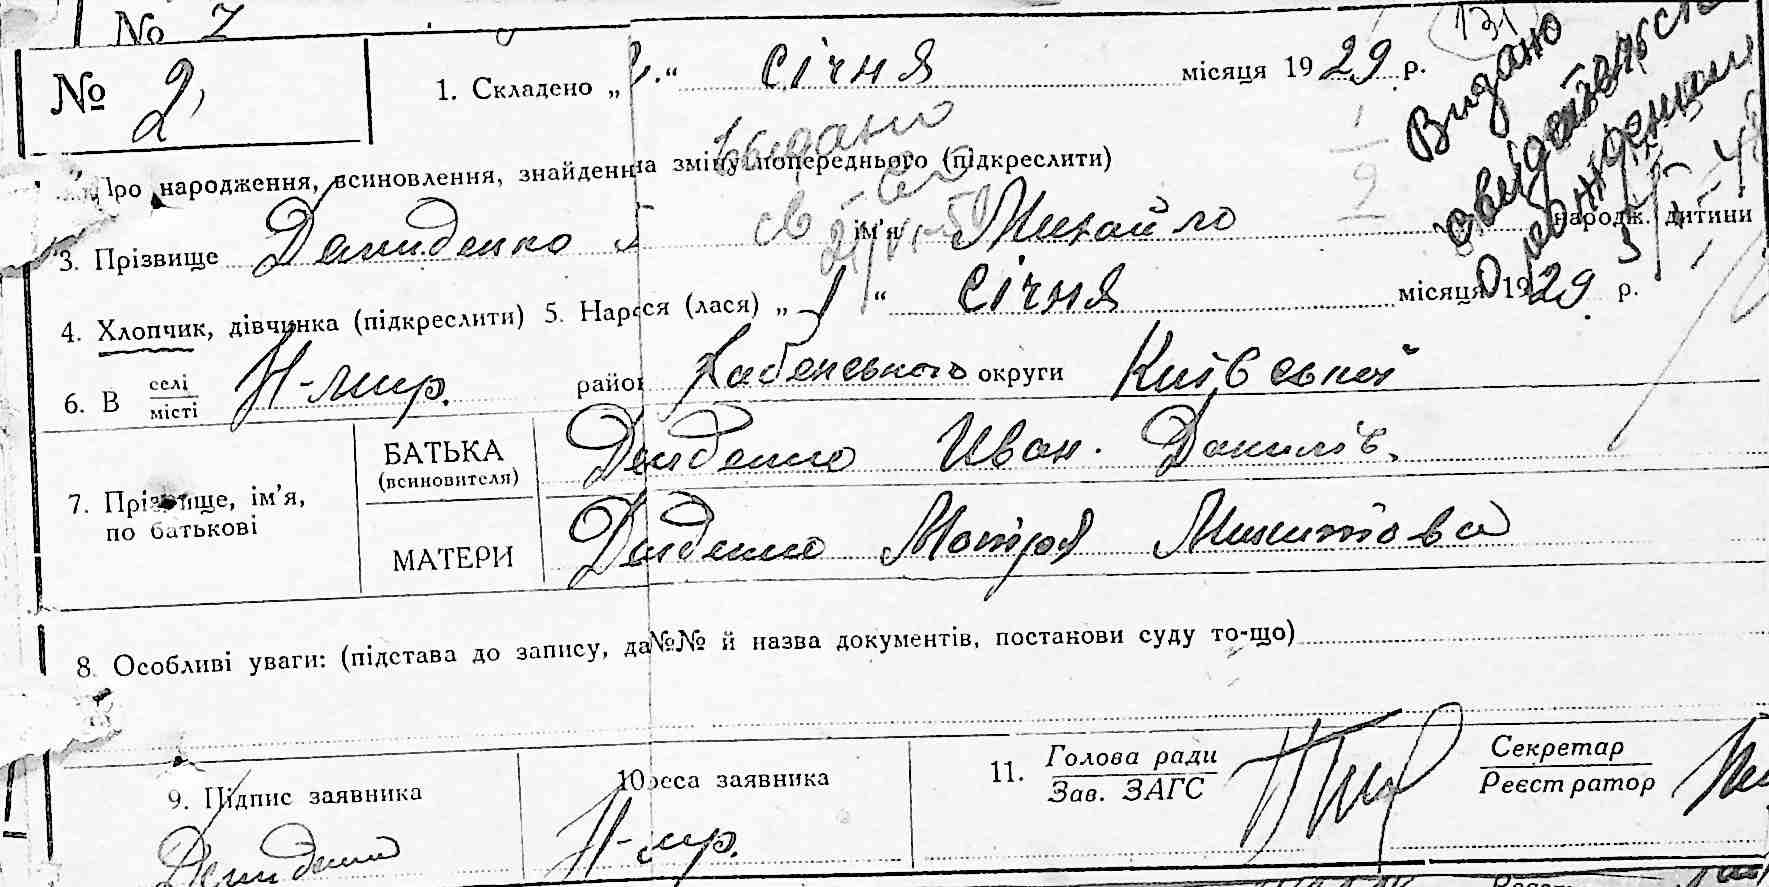 № 7
№ 2,
1. Складено „ 2. “ січня місяця 1929 р.
131
Видано
свідетельст
о рожденнии
Выдано
св
Про народження, всиновлення, знайдення на зміну попереднього (підкреслити)
3. Прізвище Демиденко ім'я Михайло народж. дитини
4. Хлопчик, дівчинка (підкреслити) 5. Народ ся (лася) „ 1 “ січня місяця 1929 р.
6. В селі місті Н-мир. район Хабенського округи Київської
7. Прізвище, ім'я, по батькові
БАТЬКА (всиновителя) Демиденко Иван. Данилів.
МАТЕРИ Демиденко Мотря Микитова
8. Особливі уваги: (підстава до запису, да №№ й назва документів, постанови суду то-що)
9. Підпис заявника
10 реса заявника
11. Голова ради
Зав. ЗАГС
Секретар
Реєстратор
Демиденко
Н-мир.